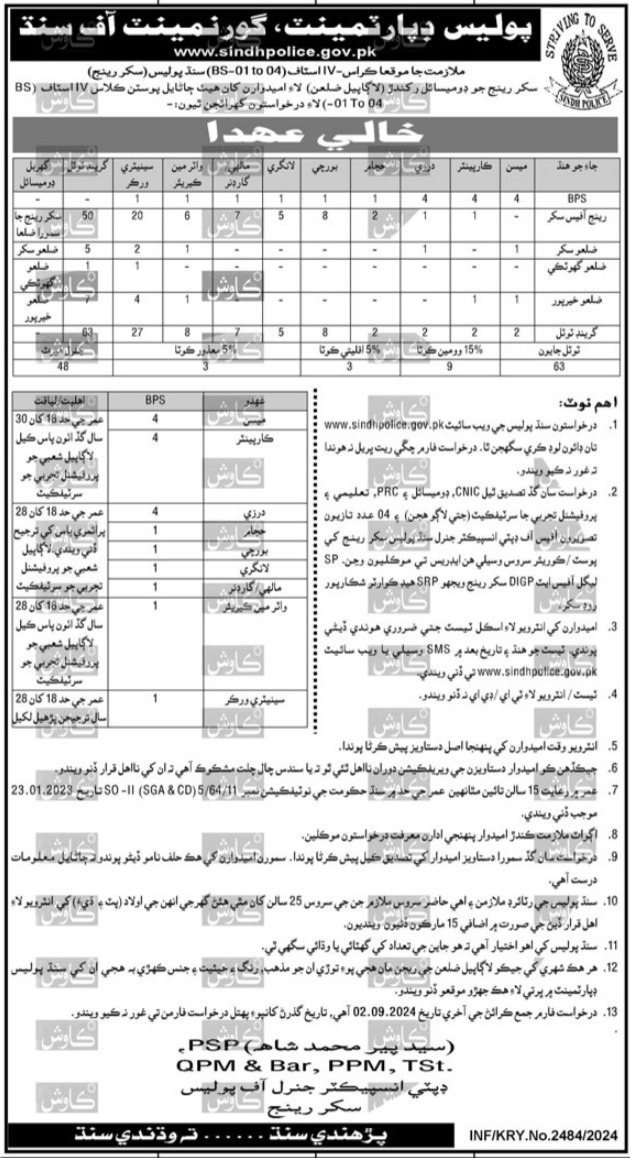 پوليس ڊپارٽمينٽ، گورنمينٽ آف سنڌ
www.sindhpolice.gov.pk
STRIVING TO SERVE
SINDH POLICE
ملازمت جا موقعا ڪلاس-IV اسٽاف (BS-01 to 04) سنڌ پوليس (سکر رينج)
سکر رينج جو ڊوميسائل رکندڙ (لاڳاپيل ضلعن) لاءِ اميدوارن کان هيٺ ڄاڻايل پوسٽن ڪلاس IV اسٽاف (BS
-01 To 04) لاءِ درخواستون گهرائجن ٿيون:-
خالي عهدا
جاءِ جو هنڌ | ميسن | ڪارپينٽر | درزي | حجام | بورچي | لانگري | مالهي/گارڊنر | واٽر مين ڪيريئر | سينيٽري ورڪر | گرينڊ ٽوٽل | گهربل ڊوميسائل
BPS | 4 | 4 | 4 | 1 | 1 | 1 | 1 | 1 | 1 | - | -
رينج آفيس سکر | - | 1 | 1 | 2 | 8 | 5 | 7 | 6 | 20 | 50 | سکر رينج جا سمورا ضلعا
ضلعو سکر | 1 | - | 1 | - | - | - | - | 1 | 2 | 5 | ضلعو سکر
ضلعو گهوٽڪي | - | - | - | - | - | - | - | - | 1 | 1 | ضلعو گهوٽڪي
ضلعو خيرپور | 1 | 1 | - | - | - | - | - | 1 | 4 | 7 | ضلعو خيرپور
گرينڊ ٽوٽل | 2 | 2 | 2 | 2 | 8 | 5 | 7 | 8 | 27 | 63 | -
ٽوٽل جايون | 15% وومين ڪوٽا | 5% اقليتي ڪوٽا | 5% معذور ڪوٽا | جنرل ميرٽ
63 | 9 | 3 | 3 | 48
اهم نوٽ:
1. درخواستون سنڌ پوليس جي ويب سائيٽ www.sindhpolice.gov.pk
تان ڊائون لوڊ ڪري سگهجن ٿا. درخواست فارم چڱي ريت ڀريل نه هوندا
ته غور نه ڪيو ويندو.
2. درخواست سان گڏ تصديق ٿيل CNIC، ڊوميسائل ۽ PRC، تعليمي ۽
پروفيشنل تجربي جا سرٽيفڪيٽ (جتي لاڳو هجن) ۽ 04 عدد تازيون
تصويرون آفيس آف ڊپٽي انسپيڪٽر جنرل سنڌ پوليس سکر رينج کي
پوسٽ/ڪوريئر سروس وسيلي هن ايڊريس تي موڪليون وڃن. SP
ليگل آفيس ايٽ DIGP سکر رينج ويجهو SRP هيڊ ڪوارٽر شڪارپور
روڊ سکر.
3. اميدوارن کي انٽرويو لاءِ اسڪل ٽيسٽ جتي ضروري هوندي ڏيڻي
پوندي. ٽيسٽ جو هنڌ ۽ تاريخ بعد ۾ SMS وسيلي يا ويب سائيٽ
www.sindhpolice.gov.pk تي ڏني ويندي.
4. ٽيسٽ/انٽرويو لاءِ ٽي اي/ڊي اي نه ڏنو ويندو.
عهدو | BPS | اهليت/لياقت
ميسن | 4 | عمر جي حد 18 کان 30
ڪارپينٽر | 4 | سال گڏ اٺون پاس ڪيل
لاڳاپيل شعبي جو
پروفيشنل تجربي جو
سرٽيفڪيٽ
درزي | 4 | عمر جي حد 18 کان 28
حجام | 1 | پرائمري پاس کي ترجيح
بورچي | 1 | ڏني ويندي. لاڳاپيل
لانگري | 1 | شعبي جو پروفيشنل
مالهي/گارڊنر | 1 | تجربي جو سرٽيفڪيٽ
واٽر مين ڪيريئر | 1 | عمر جي حد 18 کان 28
سال گڏ اٺون پاس ڪيل
لاڳاپيل شعبي جو
پروفيشنل تجربي جو
سرٽيفڪيٽ
سينيٽري ورڪر | 1 | عمر جي حد 18 کان 28
سال ترجيحن پڙهيل لکيل
5. انٽرويو وقت اميدوارن کي پنهنجا اصل دستاويز پيش ڪرڻا پوندا.
6. جيڪڏهن ڪو اميدوار دستاويزن جي ويريفڪيشن دوران نااهل ٿئي ٿو يا سندس چال چلت مشڪوڪ آهي ته ان کي نااهل قرار ڏنو ويندو.
7. عمر ۾ رعايت 15 سالن تائين مٿانهين عمر جي حد ۾ سنڌ حڪومت جي نوٽيفڪيشن نمبر SO -II (SGA & CD) 5/64/11 تاريخ 23.01.2023
موجب ڏني ويندي.
8. اڳواٽ ملازمت ڪندڙ اميدوار پنهنجي اداري معرفت درخواستون موڪلين.
9. درخواست سان گڏ سمورا دستاويز اميدوار کي تصديق ڪيل پيش ڪرڻا پوندا. سمورن اميدوارن کي هڪ حلف نامو ڏيڻو پوندو ته ڄاڻايل معلومات
درست آهي.
10. سنڌ پوليس جي رٽائرڊ ملازمن ۽ اهي حاضر سروس ملازم جن جي سروس 25 سالن کان مٿي هئڻ گهرجي انهن جي اولاد (پٽ ۽ ڌيءَ) کي انٽرويو لاءِ
اهل قرار ڏيڻ جي صورت ۾ اضافي 15 مارڪون ڏنيون وينديون.
11. سنڌ پوليس کي اهو اختيار آهي ته هو جاين جي تعداد کي گهٽائي يا وڌائي سگهي ٿي.
12. هر هڪ شهري کي جيڪو لاڳاپيل ضلعن جي رينجن مان هجي پوءِ توڙي ان جو مذهب، رنگ ۽ حيثيت ۽ جنس ڪهڙي به هجي ان کي سنڌ پوليس
ڊپارٽمينٽ ۾ ڀرتي لاءِ هڪ جهڙو موقعو ڏنو ويندو.
13. درخواست فارم جمع ڪرائڻ جي آخري تاريخ 02.09.2024 آهي، تاريخ گذرڻ کانپوءِ پهتل درخواست فارمن تي غور نه ڪيو ويندو.
(سيد پير محمد شاهه) PSP،
QPM & Bar, PPM, TSt.
ڊپٽي انسپيڪٽر جنرل آف پوليس
سکر رينج
پڙهندي سنڌ ...... ته وڌندي سنڌ
INF/KRY.No.2484/2024